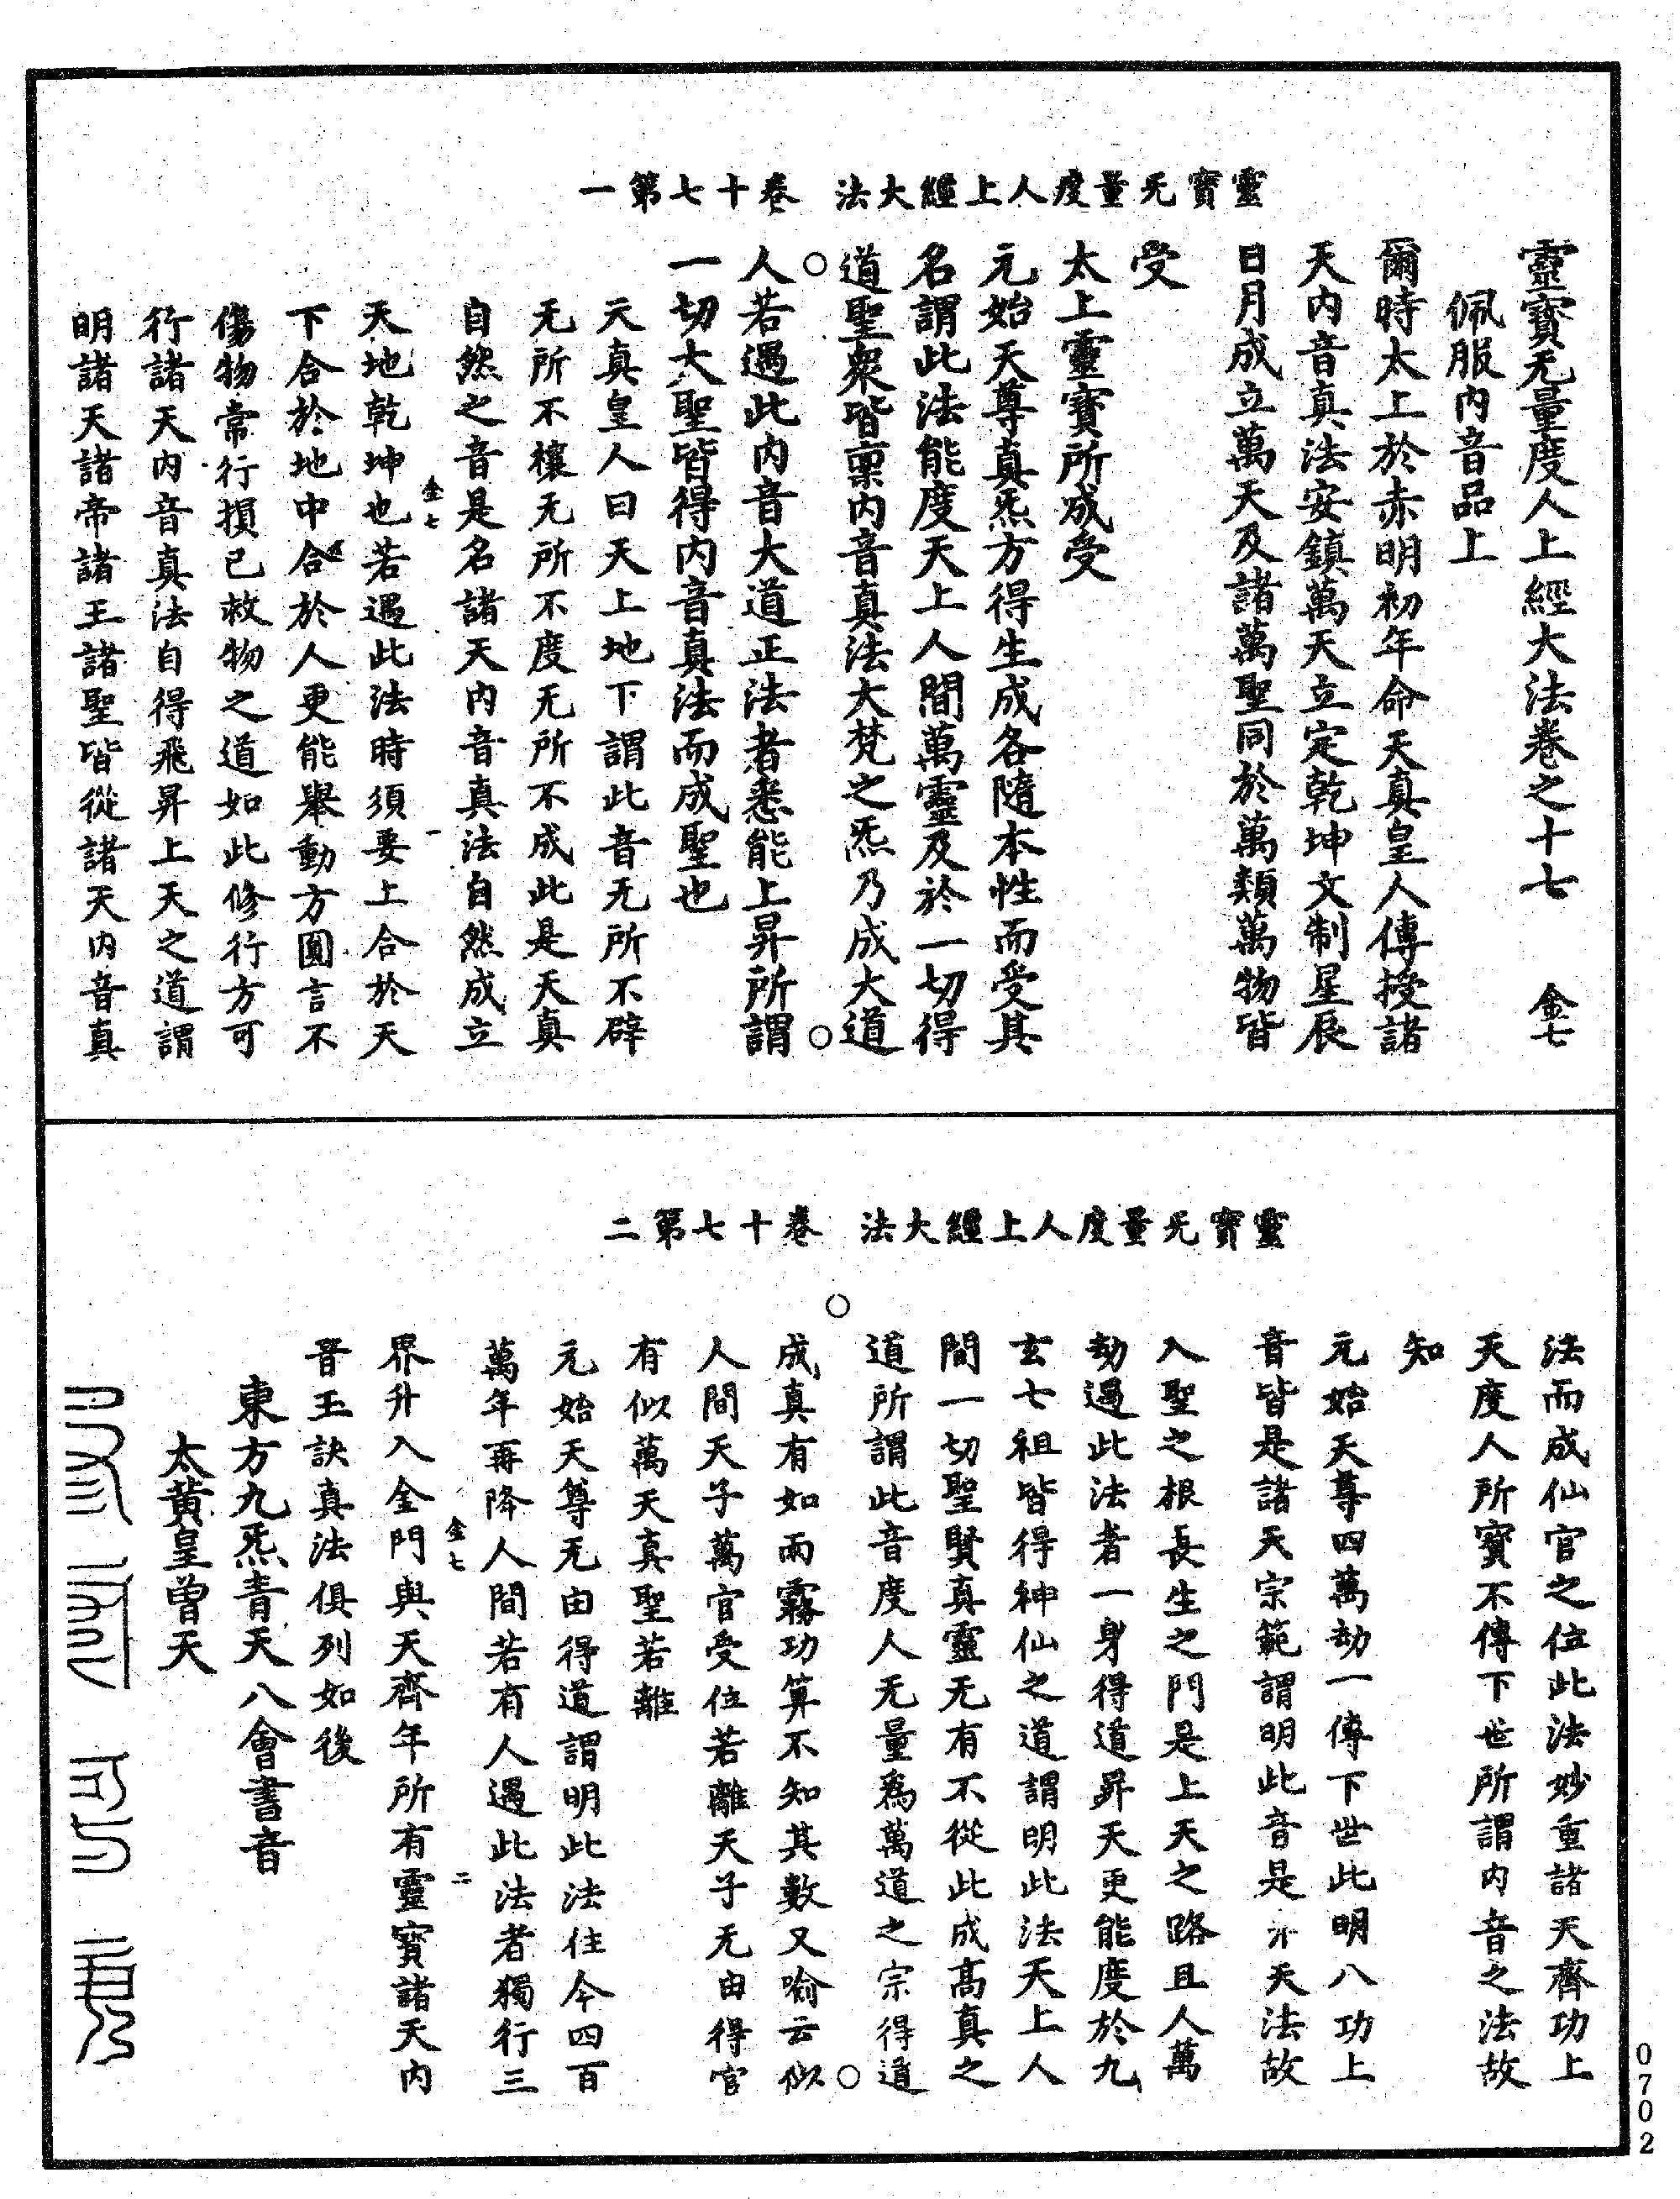 靈寶无量度人上經大法　卷十七第一
靈寶无量度人上經大法卷之十七　金七
佩服內音品上
爾時太上於赤明初年命天真皇人傳授諸
天內音真法安鎮萬天立定乾坤文制星辰
日月成立萬天及諸萬聖同於萬類萬物皆
受
太上靈寶所成受
元始天尊真炁方得生成各隨本性而受其
名謂此法能度天上人間萬靈及於一切得
道聖眾皆稟內音真法大梵之炁乃成大道
人若遇此內音大道正法者悉能上昇所謂
一切大聖皆得內音真法而成聖也
天真皇人曰天上地下謂此音无所不辟
无所不禳无所不度无所不成此是天真
自然之音是名諸天內音真法自然成立
金七　一
天地乾坤也若遇此法時須要上合於天
下合於地中合於人更能舉動方圓言不
傷物常行損己救物之道如此修行方可
行諸天內音真法自得飛昇上天之道謂
明諸天諸帝諸王諸聖皆從諸天內音真
靈寶无量度人上經大法　卷十七第二
法而成仙官之位此法妙重諸天齊功上
天度人所寶不傳下世所謂內音之法故
知
元始天尊四萬劫一傳下世此明八功上
音皆是諸天宗範謂明此音是天法故
入聖之根長生之門是上天之路且人萬
劫遇此法者一身得道昇天更能度於九
玄七祖皆得神仙之道謂明此法天上人
間一切聖賢真靈无有不從此成高真之
道所謂此音度人无量為萬道之宗得道
成真有如雨霧功筭不知其數又喻云似
人間天子萬官受位若離天子无由得官
有似萬天真聖若離
元始天尊无由得道謂明此法住今四百
萬年再降人間若有人遇此法者獨行三
金七　二
界升入金門與天齊年所有靈寶諸天內
音玉訣真法俱列如後
東方九炁青天八會書音
太黃皇曾天
0702